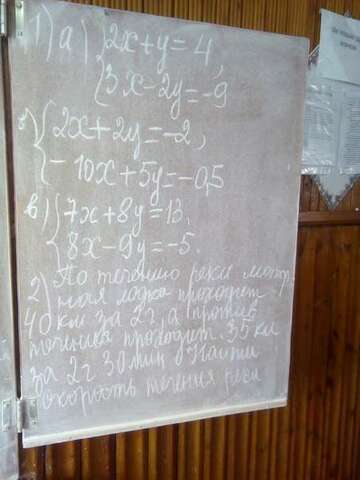 1) а) { 2x + y = 4,
3x - 2y = -9
б) { 2x + 2y = -2,
-10x + 5y = -0,5
в) { 7x + 8y = 13,
8x - 9y = -5.
2) По течению реки мотор-
ная лодка проходит
40 км за 2ч, а против
течения проходит 35 км
за 2ч 30 мин. Найти
скорость течения реки